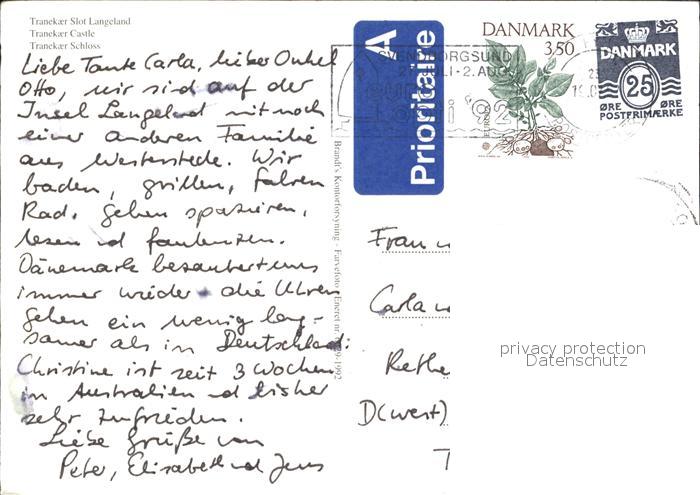 Tranekær Slot Langeland
Tranekær Castle
Tranekær Schloss
Liebe Tante Carla, lieber Onkel
Otto, wir sind auf der
Insel Langeland mit noch
einer anderen Familie
aus Westerstede. Wir
baden, grillen, fahren
Rad, gehen spazieren,
lesen ud faulenzen.
Dänemark bezaubert uns
immer wieder - die Uhren
gehen ein wenig lang-
samer als in Deutschland:
Christine ist seit 3 Wochen
in Australien ud bisher
sehr zufrieden.
Liebe Grüße von
Peter, Elisabeth ud Jens
Brandt's Kontorforsyning - Farvefoto - Eneret nr.
-1992
A
Prioritaire
DANMARK
3.50
EUROPA
DANMARK
25
ØRE ØRE
POSTFRIMÆRKE
SVENDBORGSUND
27. JULI - 2. AUG
92
Frau
Carla
Rethe
D(west)
privacy protection
Datenschutz